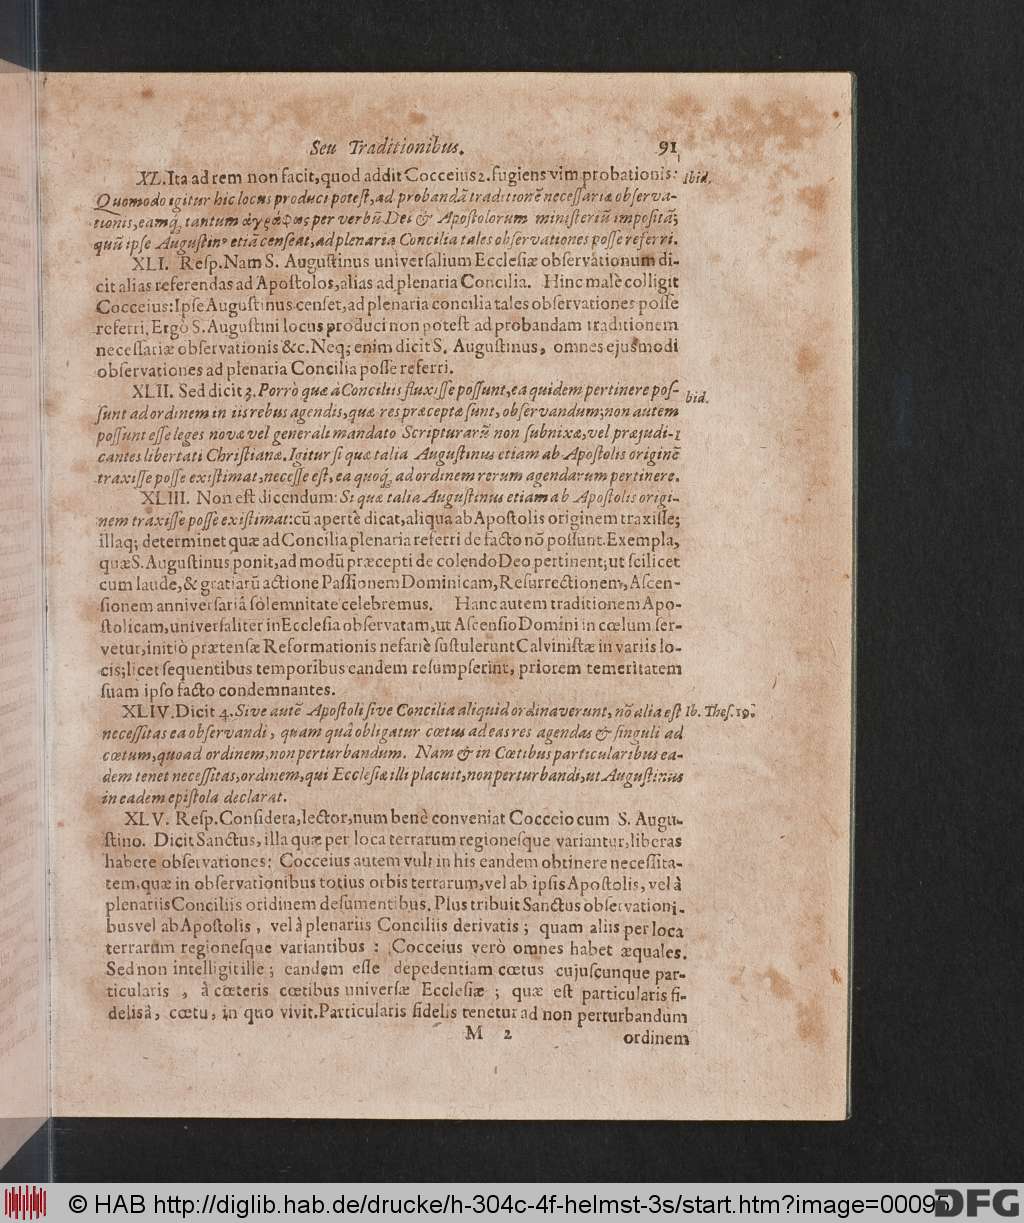 Seu Traditionibus. 91
XL. Ita ad rem non facit, quod addit Cocceius 2. fugiens vim probationis: Ibid.
Quomodo igitur hic locus produci potest, ad probandã traditionẽ necessaria observa-
tionis, eamq; tantum ἀγράφως per verbũ Dei & Apostolorum ministeriũ impositã;
quũ ipse Augustinꝰ etiã censeat, ad plenaria Concilia tales observationes posse referri.
XLI. Resp. Nam S. Augustinus universalium Ecclesiæ observationum di-
cit alias referendas ad Apostolos, alias ad plenaria Concilia. Hinc malè colligit
Cocceius: Ipse Augustinus censet, ad plenaria concilia tales observationes posse
referri, Ergò S. Augustini locus produci non potest ad probandam traditionem
necessariæ observationis &c. Neq; enim dicit S. Augustinus, omnes ejusmodi
observationes ad plenaria Concilia posse referri.
XLII. Sed dicit 3. Porrò quæ à Conciliis fluxisse possunt, ea quidem pertinere pos- bid.
sunt ad ordinem in iis rebus agendis, quæ res præceptæ sunt, observandum; non autem
possunt esse leges novæ vel generali mandato Scripturarũ non subnixæ, vel præjudi-
cantes libertati Christianæ. Igitur si quæ talia Augustinus etiam ab Apostolis originẽ
traxisse posse existimat, necesse est, ea quoq; ad ordinem rerum agendarum pertinere.
XLIII. Non est dicendum: Si quæ talia Augustinus etiam ab Apostolis origi-
nem traxisse posse existimat: cũ apertè dicat, aliqua ab Apostolis originem traxisse;
illaq; determinet quæ ad Concilia plenaria referri de facto nõ possunt. Exempla,
quæ S. Augustinus ponit, ad modũ præcepti de colendo Deo pertinent; ut scilicet
cum laude, & gratiarũ actione Passionem Dominicam, Resurrectionem, Ascen-
sionem anniversariâ solemnitate celebremus. Hanc autem traditionem Apo-
stolicam, universaliter in Ecclesia observatam, ut Ascensio Domini in cœlum ser-
vetur, initio prætensæ Reformationis nefariè sustulerunt Calvinistæ in variis lo-
cis; licet sequentibus temporibus eandem resumpserint, priorem temeritatem
suam ipso facto condemnantes.
XLIV. Dicit 4. Sive autẽ Apostoli sive Concilia aliquid ordinaverunt, nõ alia est Ib. Thes. 19.
necessitas ea observandi, quam quâ obligatur cœtus ad eas res agendas & singuli ad
cœtum, quoad ordinem, non perturbandum. Nam & in Cœtibus particularibus ea-
dem tenet necessitas, ordinem, qui Ecclesiæ illi placuit, non perturbandi, ut Augustinus
in eadem epistola declarat.
XLV. Resp. Considera, lector, num benè conveniat Cocceio cum S. Augu-
stino. Dicit Sanctus, illa quæ per loca terrarum regionesque variantur, liberas
habere observationes: Cocceius autem vult in his eandem obtinere necessita-
tem, quæ in observationibus totius orbis terrarum, vel ab ipsis Apostolis, vel à
plenariis Conciliis oridinem desumentibus. Plus tribuit Sanctus observationi-
bus vel ab Apostolis, vel à plenariis Conciliis derivatis; quam aliis per loca
terrarum regionesque variantibus: Cocceius verò omnes habet æquales.
Sed non intelligit ille; eandem esse depedentiam cœtus cujuscunque par-
ticularis, à cœteris cœtibus universæ Ecclesiæ; quæ est particularis fi-
delis â, cœtu, in quo vivit. Particularis fidelis tenetur ad non perturbandum
M 2 ordinem
© HAB http://diglib.hab.de/drucke/h-304c-4f-helmst-3s/start.htm?image=00095
DFG